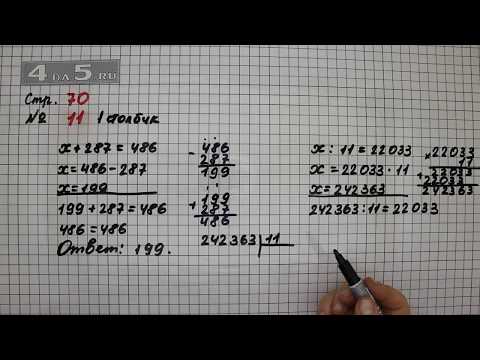 4 DA 5 RU
Стр. 70
№ 11 1 столбик
x + 287 = 486
x = 486 - 287
x = 199
199 + 287 = 486
486 = 486
Ответ: 199.
- 486
287
199
+ 199
287
486
242363 | 11
x : 11 = 22033
x = 22033 · 11
x = 242363
242363 : 11 = 22033
× 22033
11
+ 22033
22033
242363